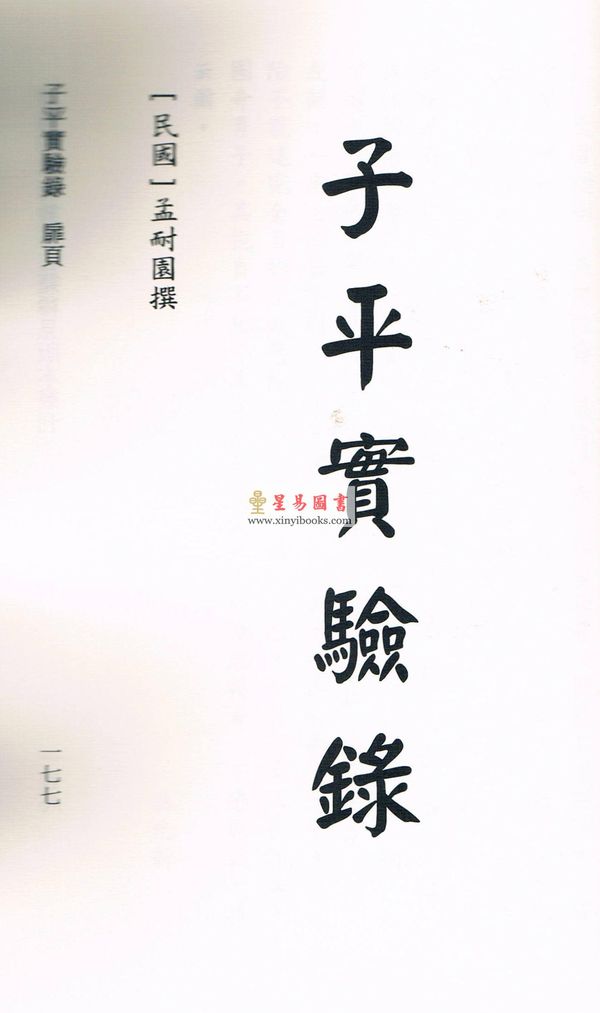 子平實驗錄
［民國］孟耐園撰
子平實驗錄　扉頁
一七七
星易圖書
www.xinyibooks.com